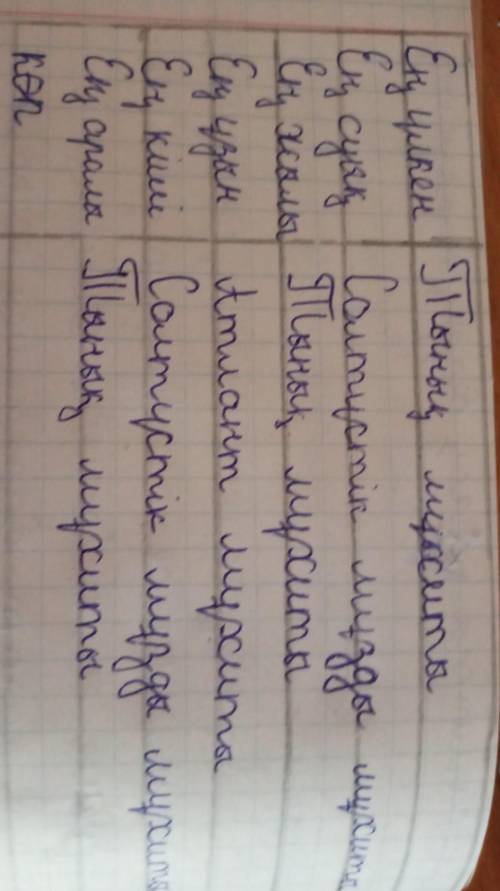 Ең үлкен Тынық мұхиты
Ең суық Солтүстік мұзды мұхиты
Ең жылы Тынық мұхиты
Ең ұзын Атлант мұхиты
Ең кіші Солтүстік мұзды мұхиты
Ең аралы Тынық мұхиты
көп